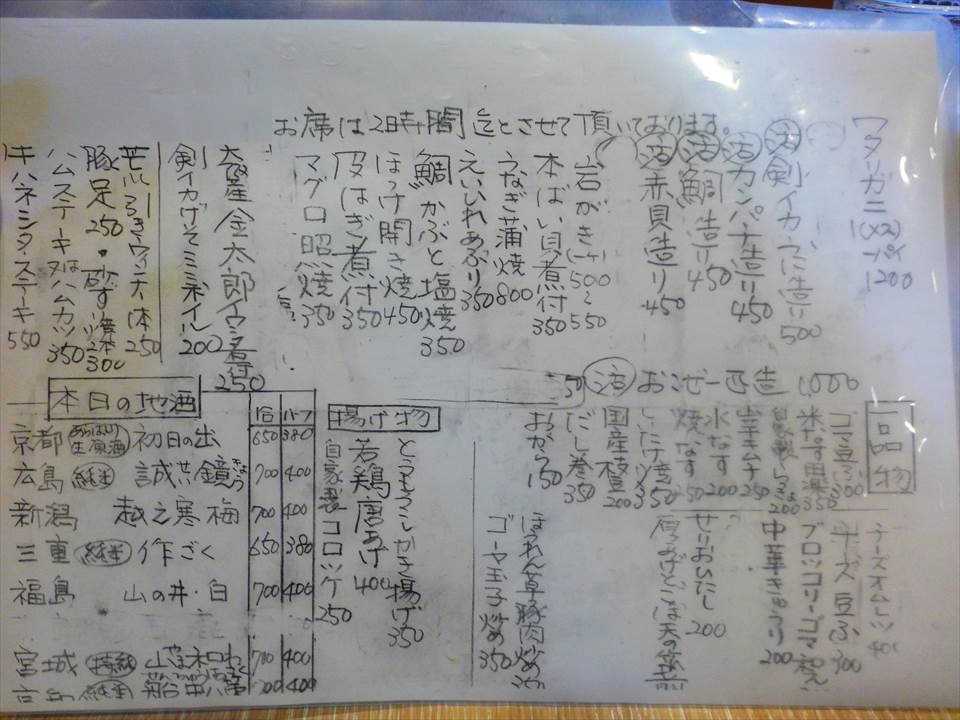 お席は2時間迄とさせて頂いております。
ワタリガニ
1(メス)
一パイ
1200
活剣イカウニ造り 500
活カンパチ造り 450
活鯛造り 450
活赤貝造り 450
岩がき(一ヶ)500〜550
本ばい貝煮付 350
うなぎ蒲焼 800
えいひれあぶり 350
鯛かぶと塩焼 350
ほっけ開き焼 450
皮はぎ煮付 350
マグロ 焼 350
金太郎 煮付 250
剣イカげそミミボイル 200
ウインナー1本 250
豚足 250・砂ずり焼2本 300
ハムステーキ又はハムカツ 350
キハネシタステーキ 550
活おこぜ一匹造 1,000
一品物
ゴマ豆ふ 300
米なす田楽 350
自家製らっきょ 200
山芋キムチ 250
水なす 200
焼なす 250
しいたけ焼 350
国産 200
だし巻 350
おから 150
チーズオムレツ 400
チーズ豆ふ 300
ブロッコリーゴマ和え
中華きゅうり 200
せりおひたし 200
ほうれん草豚肉炒め
ゴーヤ玉子炒め 350
揚げ物
とうもろこしかき揚げ 350
若鶏唐あげ 400
自家製コロッケ 250
本日の地酒
1合 ハーフ
京都 あらばしり生原酒 初日の出 650 380
広島 純米 誠鏡 700 400
新潟 越之寒梅 700 400
三重 純米 作ざく 650 380
福島 山の井・白 700 400
宮城 特純 山和 700 400
純米 船中八策 700 400